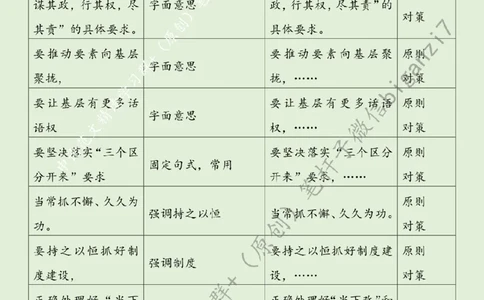 谋其政，行其权，尽
其责”的具体要求。
字面意思
谋其政，行其权，尽其责”的
具体要求。
对策
要推动要素向基层
聚拢，
字面意思
要推动要素向基层聚
拢，……
原则
对策
要让基层有更多话
语权
字面意思
要让基层有更多话语
权，……
原则
对策
要坚决落实“三个区
分开来”要求
固定句式，常用
要坚决落实“三个区分
开来”要求，……
原则
对策
当常抓不懈、久久为
功。
强调持之以恒
当常抓不懈、久久为功。
原则
对策
要持之以恒抓好制
度建设，
强调制度
要持之以恒抓好制度建
设，……
原则
对策
正确处理好“当下
正确处理好“当下改”和
原则
笔杆子微信biganzi7
群+（原创）